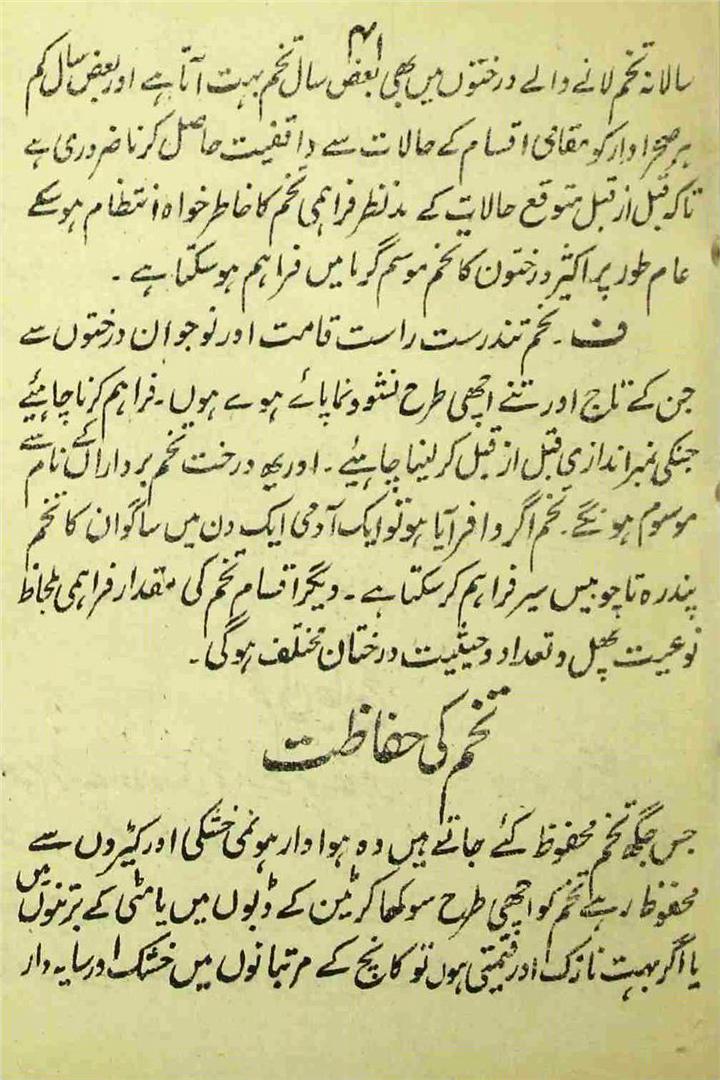 ۴۱
سالانہ تخم لانے والے درختوں میں بھی بعض سال تخم بہت آتا ہے اور بعض سال کم
ہر صحرا دار کو مقامی اقسام کے حالات سے واقفیت حاصل کرنا ضروری ہے
تاکہ قبل از قبل متوقع حالات کے مدنظر فراہمی تخم کا خاطر خواہ انتظام ہو سکے
عام طور پر اکثر درختوں کا تخم موسم گرما میں فراہم ہو سکتا ہے ۔
ف ۔ تخم تندرست راست قامت اور نوجوان درختوں سے
جن کے تاج اور تنے اچھی طرح نشوونما پائے ہوے ہوں ۔ فراہم کرنا چاہئیے
جنکی نمبر اندازی قبل از قبل کر لینا چاہئیے ۔ اور یہ درخت تخم برداراں کے نام سے
موسوم ہونگے ۔ تخم اگر وافر آیا ہو تو ایک آدمی ایک دن میں ساگوان کا تخم
پندرہ تا چوبیس سیر فراہم کر سکتا ہے ۔ دیگر اقسام تخم کی مقدار فراہمی بلحاظ
نوعیت پھل و تعداد و حیثیت درختان مختلف ہو گی ۔
تخم کی حفاظت
جس جگھ تخم محفوظ کئے جاتے ہیں وہ ہوا دار ہو نمی خشکی اور کیڑوں سے
محفوظ رہے تخم کو اچھی طرح سوکھا کر ٹین کے ڈبوں میں یا مٹی کے برتنوں میں
یا اگر بہت نازک اور قیمتی ہوں تو کانچ کے مرتبانوں میں خشک اور سایہ دار